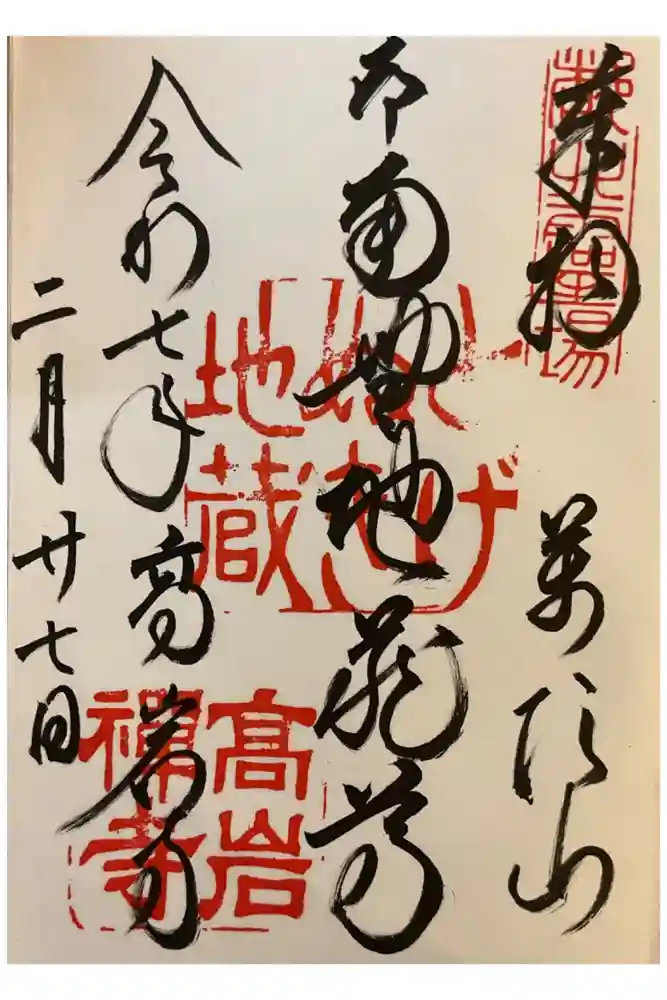 奉拝
萬頂山
南無地蔵尊
とげぬき
地蔵
令和七年
高岩寺
髙岩
禅寺
二月廿七日